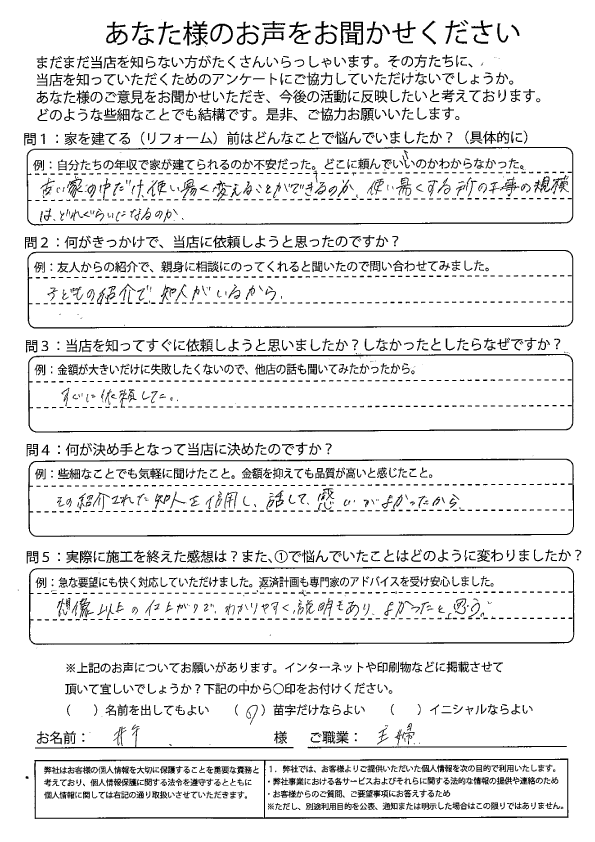 あなた様のお声をお聞かせください
まだまだ当店を知らない方がたくさんいらっしゃいます。その方たちに、
当店を知っていただくためのアンケートにご協力していただけないでしょうか。
あなた様のご意見をお聞かせいただき、今後の活動に反映したいと考えております。
どのような些細なことでも結構です。是非、ご協力お願いいたします。
問1：家を建てる（リフォーム）前はどんなことで悩んでいましたか？（具体的に）
例：自分たちの年収で家が建てられるのか不安だった。どこに頼んでいいのかわからなかった。
古い家の中だけ、使い易く変えることができるのか、使い易くする所の工事の規模
は、どれぐらいになるのか、
問2：何がきっかけで、当店に依頼しようと思ったのですか？
例：友人からの紹介で、親身に相談にのってくれると聞いたので問い合わせてみました。
子どもの紹介で知人がいるから、
問3：当店を知ってすぐに依頼しようと思いましたか？しなかったとしたらなぜですか？
例：金額が大きいだけに失敗したくないので、他店の話も聞いてみたかったから。
すぐに依頼した。
問4：何が決め手となって当店に決めたのですか？
例：些細なことでも気軽に聞けたこと。金額を抑えても品質が高いと感じたこと。
その紹介された知人を信用し、話して、感じがよかったから
問5：実際に施工を終えた感想は？また、①で悩んでいたことはどのように変わりましたか？
例：急な要望にも快く対応していただけました。返済計画も専門家のアドバイスを受け安心しました。
想像以上の仕上がりで、わかりやすく説明もあり、よかったと思う。
※上記のお声についてお願いがあります。インターネットや印刷物などに掲載させて
頂いて宜しいでしょうか？下記の中から〇印をお付けください。
（　）名前を出してもよい　（〇）苗字だけならよい　（　）イニシャルならよい
お名前：　様　ご職業：主婦
弊社はお客様の個人情報を大切に保護することを重要な責務と
考えており、個人情報保護に関する法令を遵守するとともに
個人情報に関しては右記の通り取扱いさせていただきます。
1．弊社では、お客様よりご提供いただいた個人情報を次の目的で利用いたします。
・弊社事業における各サービスおよびそれらに関する法的な情報の提供や連絡のため
・お客様からのご質問、ご要望事項にお答えするため
※ただし、別途利用目的を公表、通知または明示した場合はこの限りではありません。